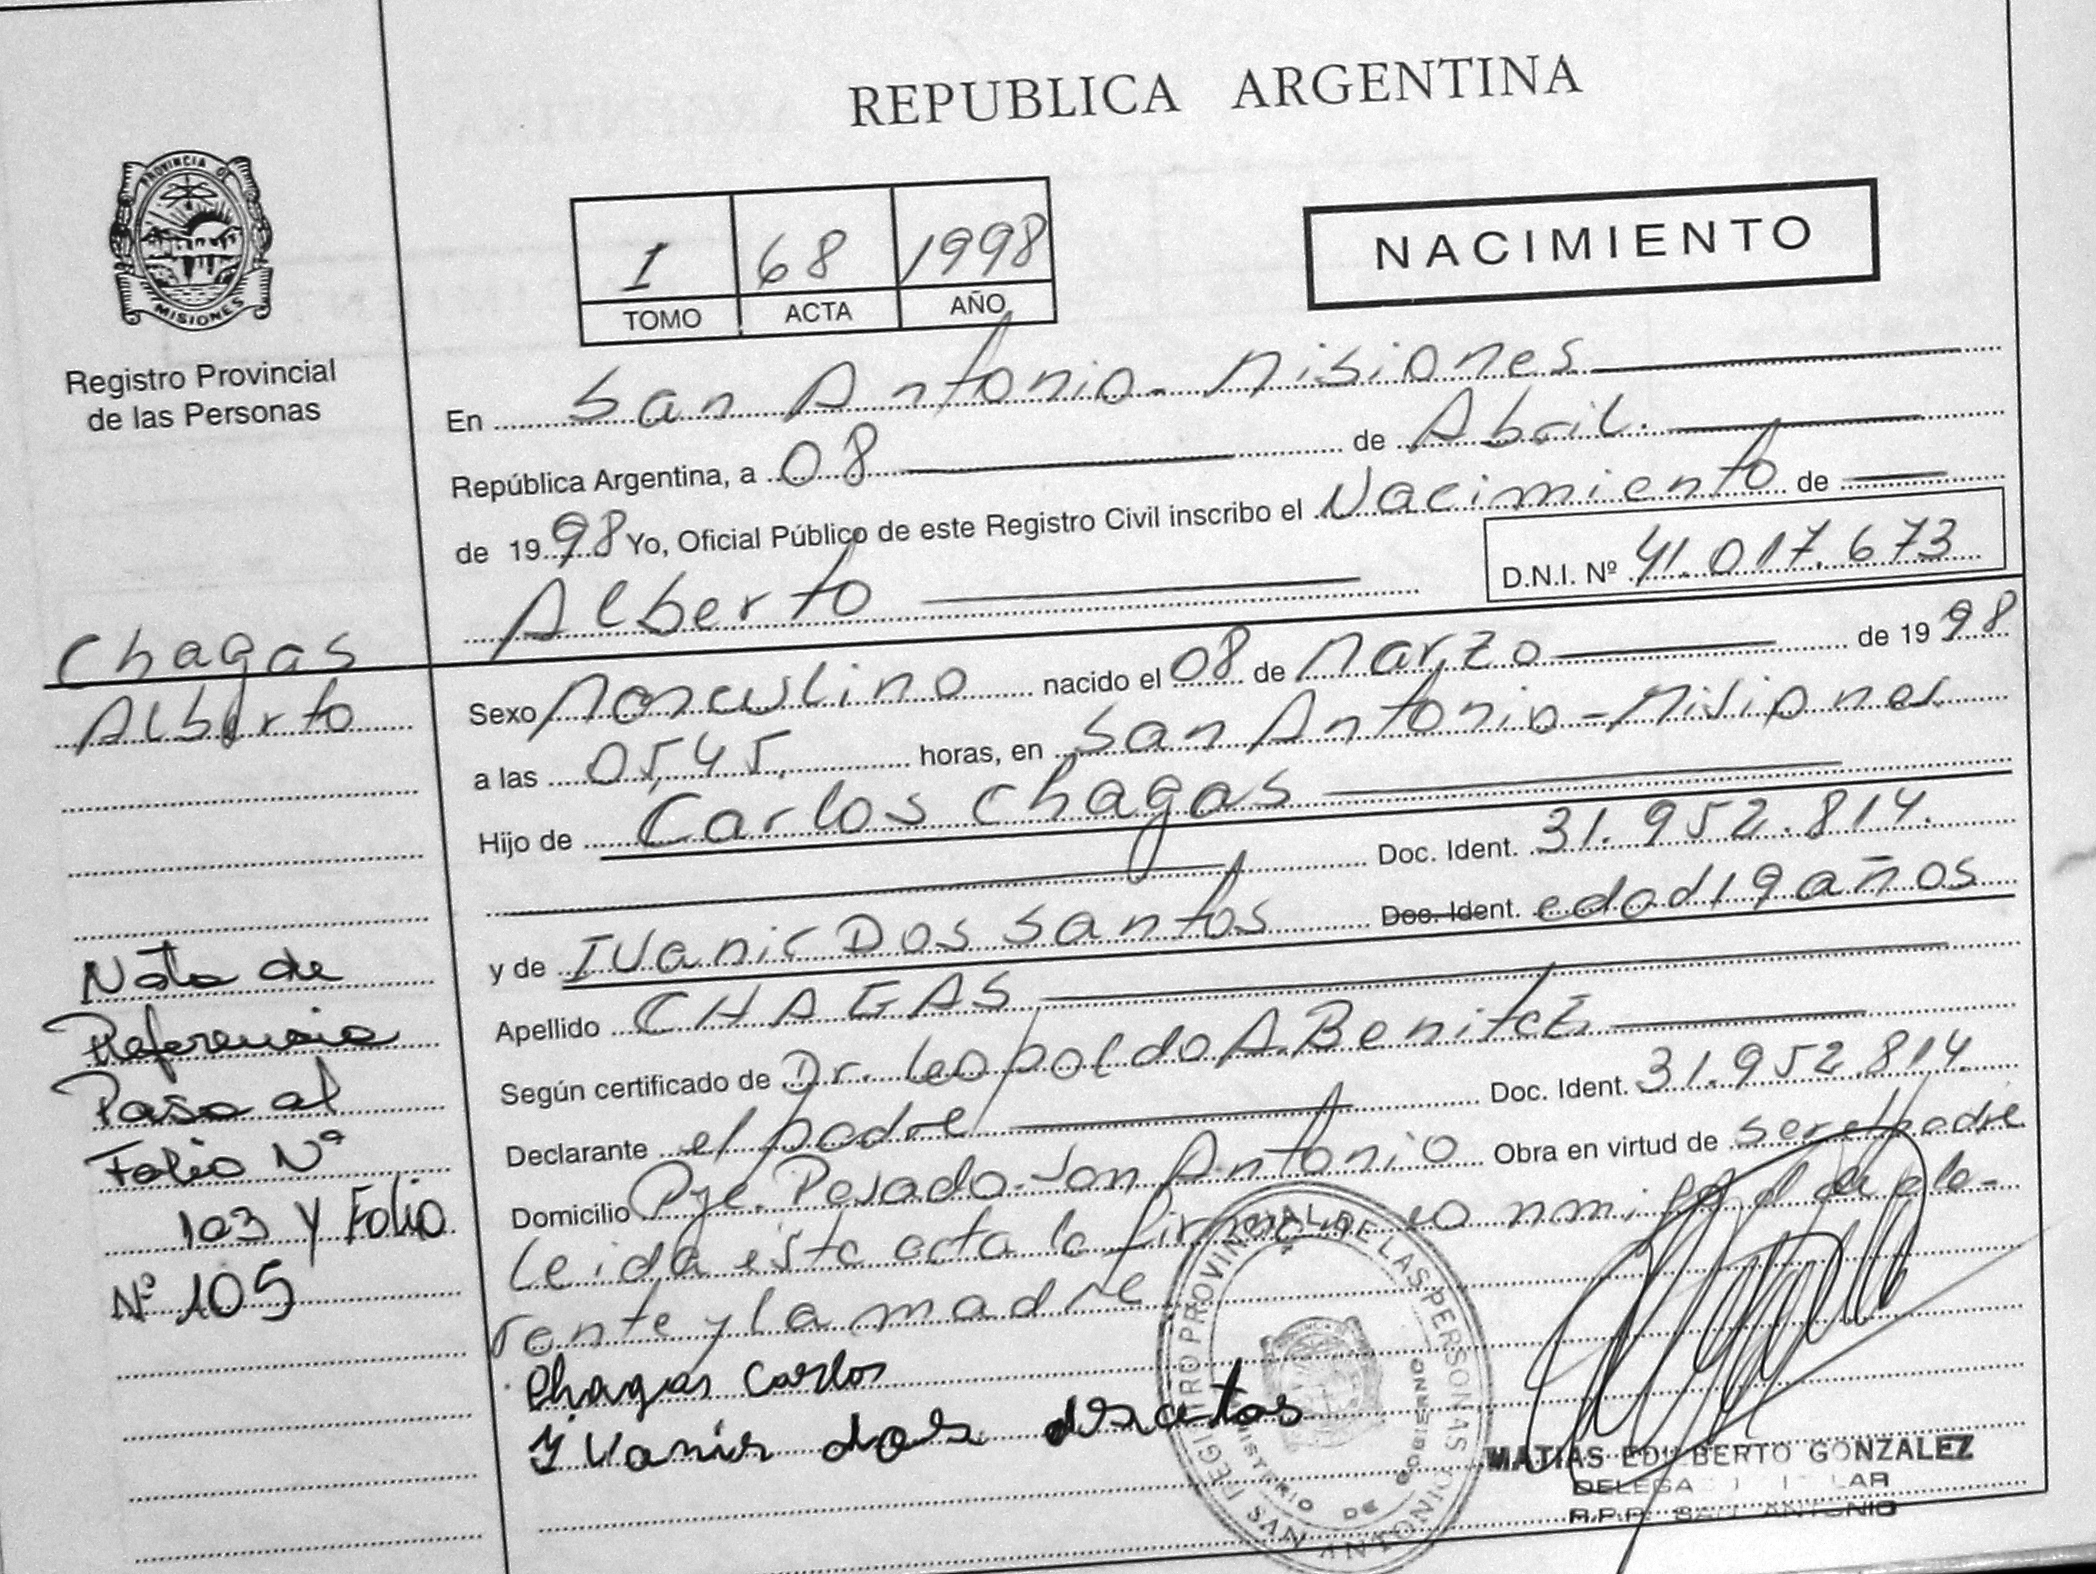 REPUBLICA ARGENTINA
PROVINCIA DE
MISIONES
Registro Provincial
de las Personas
I 68 1998
TOMO ACTA AÑO
NACIMIENTO
En San Antonio - Misiones
República Argentina, a 08 de Abril.
de 1998 Yo, Oficial Público de este Registro Civil inscribo el Nacimiento de
Alberto
D.N.I. Nº 41.017.673
Chagas
Alberto
Sexo Masculino nacido el 08 de Marzo de 1998
a las 05,45, horas, en San Antonio - Misiones
Hijo de Carlos Chagas
Doc. Ident. 31.952.814.
y de Ivanir Dos Santos Doc. Ident. edad 19 años
Apellido CHAGAS
Según certificado de Dr. Leopoldo A. Benitez
Declarante el padre Doc. Ident. 31.952.814.
Domicilio Pje. Posado - San Antonio Obra en virtud de ser el padre
Leida esta acta la firman conmigo el decla-
rante y la madre
Chagas Carlos
Ivanir dos
Nota de
Referencia
Pasa al
Folio Nº
103 y Folio
Nº 105
REGISTRO PROVINCIAL DE LAS PERSONAS
MINISTERIO DE GOBIERNO
SAN ANTONIO
MATIAS EDILBERTO GONZALEZ
R.P.P. SAN ANTONIO